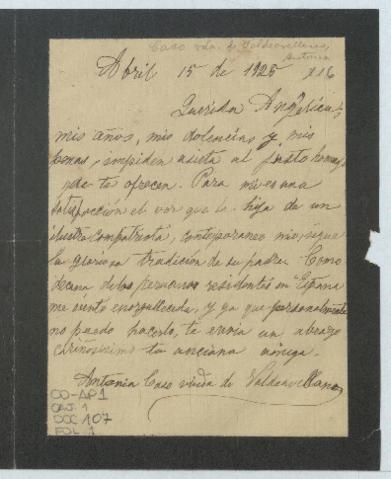 Caso vda. de Valdeavellano,
Antonia
Abril 15 de 1925
Querida Angélica:
mis años, mis dolencias y mis
penas, impiden asista al justo homenaje
que te ofrecen. Para mi es una
satisfacción el ver que la hija de un
ilustre compatriota, contemporaneo mio, sigue
la gloriosa tradición de su padre. Como
decana de las Peruanas residentes en España
me siento enorgullecida, y ya que personalmente
no puedo hacerlo, te envia un abrazo
cariñosisimo tu anciana amiga.
Antonia Caso viuda de Valdeavellano
CO-AP1
CAJ. 1
DOC 107
FOL. 1